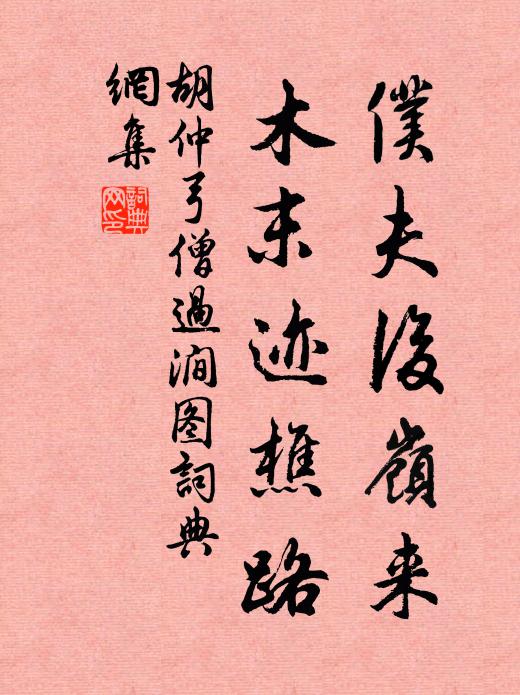 僕夫後嶺来
木末迹樵路
胡仲弓僧過澗图詞典
網集
詞典網印